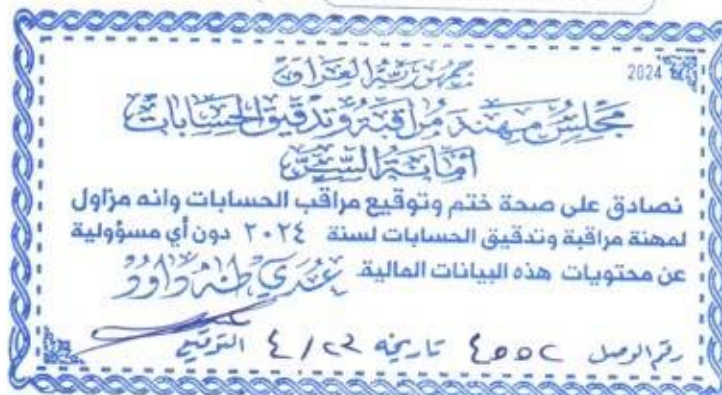 2024
جمهورية العراق
مجلس مهنة مراقبة وتدقيق الحسابات
أمانة السر
نصادق على صحة ختم وتوقيع مراقب الحسابات وانه مزاول
لمهنة مراقبة وتدقيق الحسابات لسنة ٢٠٢٤ دون أي مسؤولية
عن محتويات هذه البيانات المالية عدي طه داوود
رقم الوصل ٤٥٥٢ تاريخه ٤/٢٢ التوقيع